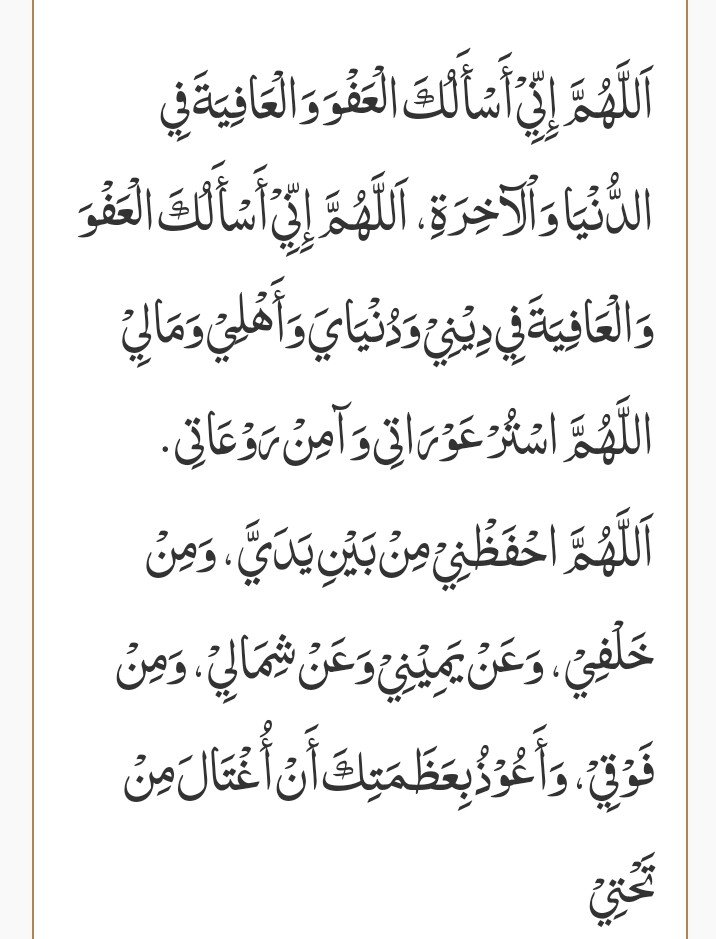 اَللَّهُمَّ إِنِّيْ أَسْأَلُكَ الْعَفْوَ وَالْعَافِيَةَ فِي
الدُّنْيَا وَالْآخِرَةِ، اَللَّهُمَّ إِنِّيْ أَسْأَلُكَ الْعَفْوَ
وَالْعَافِيَةَ فِي دِيْنِيْ وَدُنْيَايَ وَأَهْلِيْ وَمَالِيْ
اللَّهُمَّ اسْتُرْ عَوْرَاتِي وَآمِنْ رَوْعَاتِي.
اَللَّهُمَّ احْفَظْنِيْ مِنْ بَيْنِ يَدَيَّ، وَمِنْ
خَلْفِيْ، وَعَنْ يَمِيْنِيْ وَعَنْ شِمَالِيْ، وَمِنْ
فَوْقِيْ، وَأَعُوْذُ بِعَظَمَتِكَ أَنْ أُغْتَالَ مِنْ
تَحْتِيْ